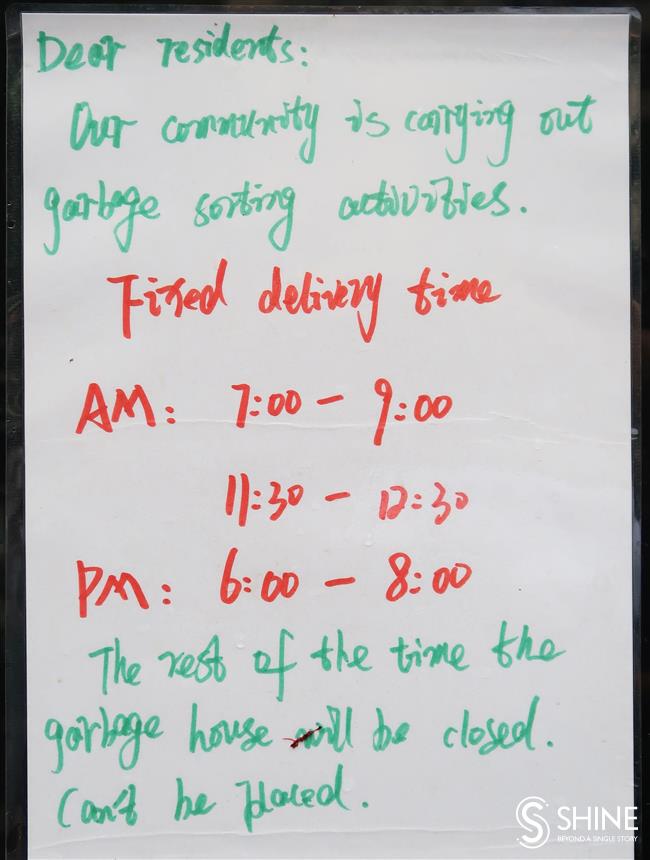 Dear residents:
Our community is carrying out
garbage sorting activities.
Fixed delivery time
AM: 7:00 - 9:00
11:30 - 12:30
PM: 6:00 - 8:00
The rest of the time the
garbage house will be closed.
Can't be placed.
SHINE
BEYOND A SINGLE STORY